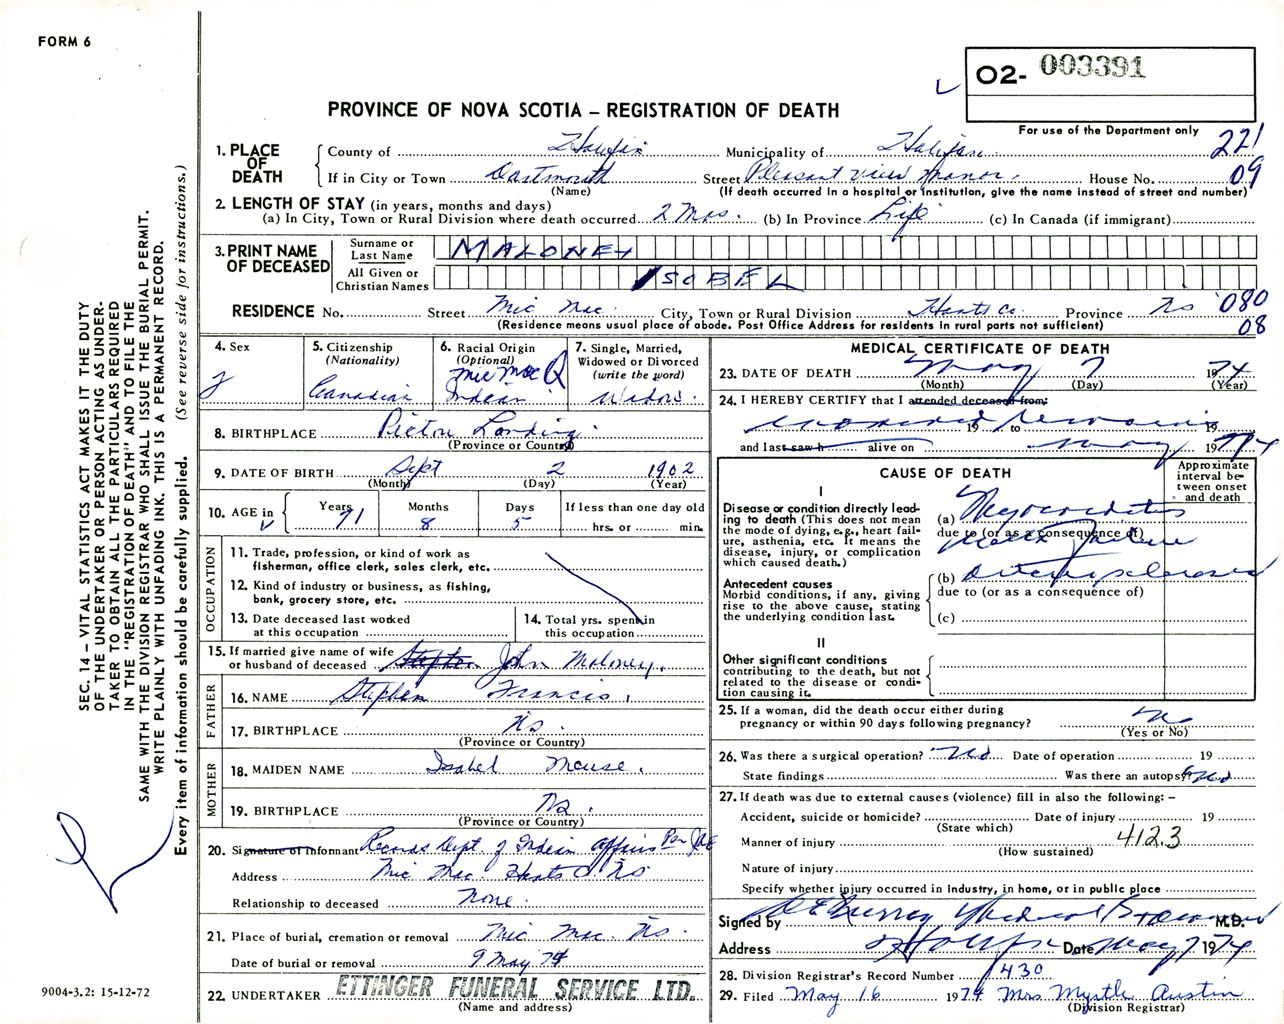 FORM 6
O2- 003391
For use of the Department only
PROVINCE OF NOVA SCOTIA – REGISTRATION OF DEATH
221
09
1. PLACE OF DEATH
County of Halifax Municipality of Halifax
If in City or Town Dartmouth Street Pleasant View Manor. House No.
(Name) (If death occurred in a hospital or institution, give the name instead of street and number)
2. LENGTH OF STAY (in years, months and days)
(a) In City, Town or Rural Division where death occurred 2 Mos. (b) In Province Life (c) In Canada (if immigrant)
3. PRINT NAME OF DECEASED
Surname or Last Name MALONEY
All Given or Christian Names ISOBEL
RESIDENCE No. Street Mic Mac City, Town or Rural Division Hants Co. Province NS 080
08
(Residence means usual place of abode. Post Office Address for residents in rural parts not sufficient)
4. Sex
5. Citizenship (Nationality) Canadian
6. Racial Origin (Optional) Mic Mac Indian
7. Single, Married, Widowed or Divorced (write the word) Widow.
8. BIRTHPLACE Pictou Landing
(Province or Country)
9. DATE OF BIRTH Sept 2 1902
(Month) (Day) (Year)
10. AGE in Years 71 Months 8 Days 5 If less than one day old
hrs. or min.
OCCUPATION
11. Trade, profession, or kind of work as fisherman, office clerk, sales clerk, etc.
12. Kind of industry or business, as fishing, bank, grocery store, etc.
13. Date deceased last worked at this occupation
14. Total yrs. spent in this occupation
15. If married give name of wife or husband of deceased Stephen John Maloney.
FATHER
16. NAME Stephen Francis.
17. BIRTHPLACE NS.
(Province or Country)
MOTHER
18. MAIDEN NAME Isabel Meuse.
19. BIRTHPLACE NS.
(Province or Country)
20. Signature of Informant Records Dept. of Indian Affairs Per
Address Mic Mac. Hants Co. NS
Relationship to deceased None.
21. Place of burial, cremation or removal Mic Mac. NS.
Date of burial or removal 9 May 74
22. UNDERTAKER ETTINGER FUNERAL SERVICE LTD.
(Name and address)
MEDICAL CERTIFICATE OF DEATH
23. DATE OF DEATH May 7 1974
(Month) (Day) (Year)
24. I HEREBY CERTIFY that I attended deceased from:
examined remains 19 to 19
and last saw h alive on May 7 1974
CAUSE OF DEATH
Approximate interval between onset and death
I
Disease or condition directly leading to death (This does not mean the mode of dying, e.g., heart failure, asthenia, etc. It means the disease, injury, or complication which caused death.)
(a) Myocarditis
due to (or as a consequence of)
Heart Failure
Antecedent causes
Morbid conditions, if any, giving rise to the above cause, stating the underlying condition last.
(b) Arteriosclerosis
due to (or as a consequence of)
(c)
II
Other significant conditions
contributing to the death, but not related to the disease or condition causing it.
25. If a woman, did the death occur either during pregnancy or within 90 days following pregnancy? No
(Yes or No)
26. Was there a surgical operation? No Date of operation 19
State findings Was there an autopsy? No
27. If death was due to external causes (violence) fill in also the following: –
Accident, suicide or homicide? Date of injury 19
(State which)
Manner of injury 412.3
(How sustained)
Nature of injury
Specify whether injury occurred in industry, in home, or in public place
Signed by Murray Medical M.D.
Address Date May 7 1974
28. Division Registrar's Record Number 430
29. Filed May 16 1974 Mrs Myrtle Austin
(Division Registrar)
SEC. 14 – VITAL STATISTICS ACT MAKES IT THE DUTY
OF THE UNDERTAKER OR PERSON ACTING AS UNDER-
TAKER TO OBTAIN ALL THE PARTICULARS REQUIRED
IN THE "REGISTRATION OF DEATH" AND TO FILE THE
SAME WITH THE DIVISION REGISTRAR WHO SHALL ISSUE THE BURIAL PERMIT.
WRITE PLAINLY WITH UNFADING INK. THIS IS A PERMANENT RECORD.
Every item of information should be carefully supplied. (See reverse side for instructions.)
9004-3.2: 15-12-72